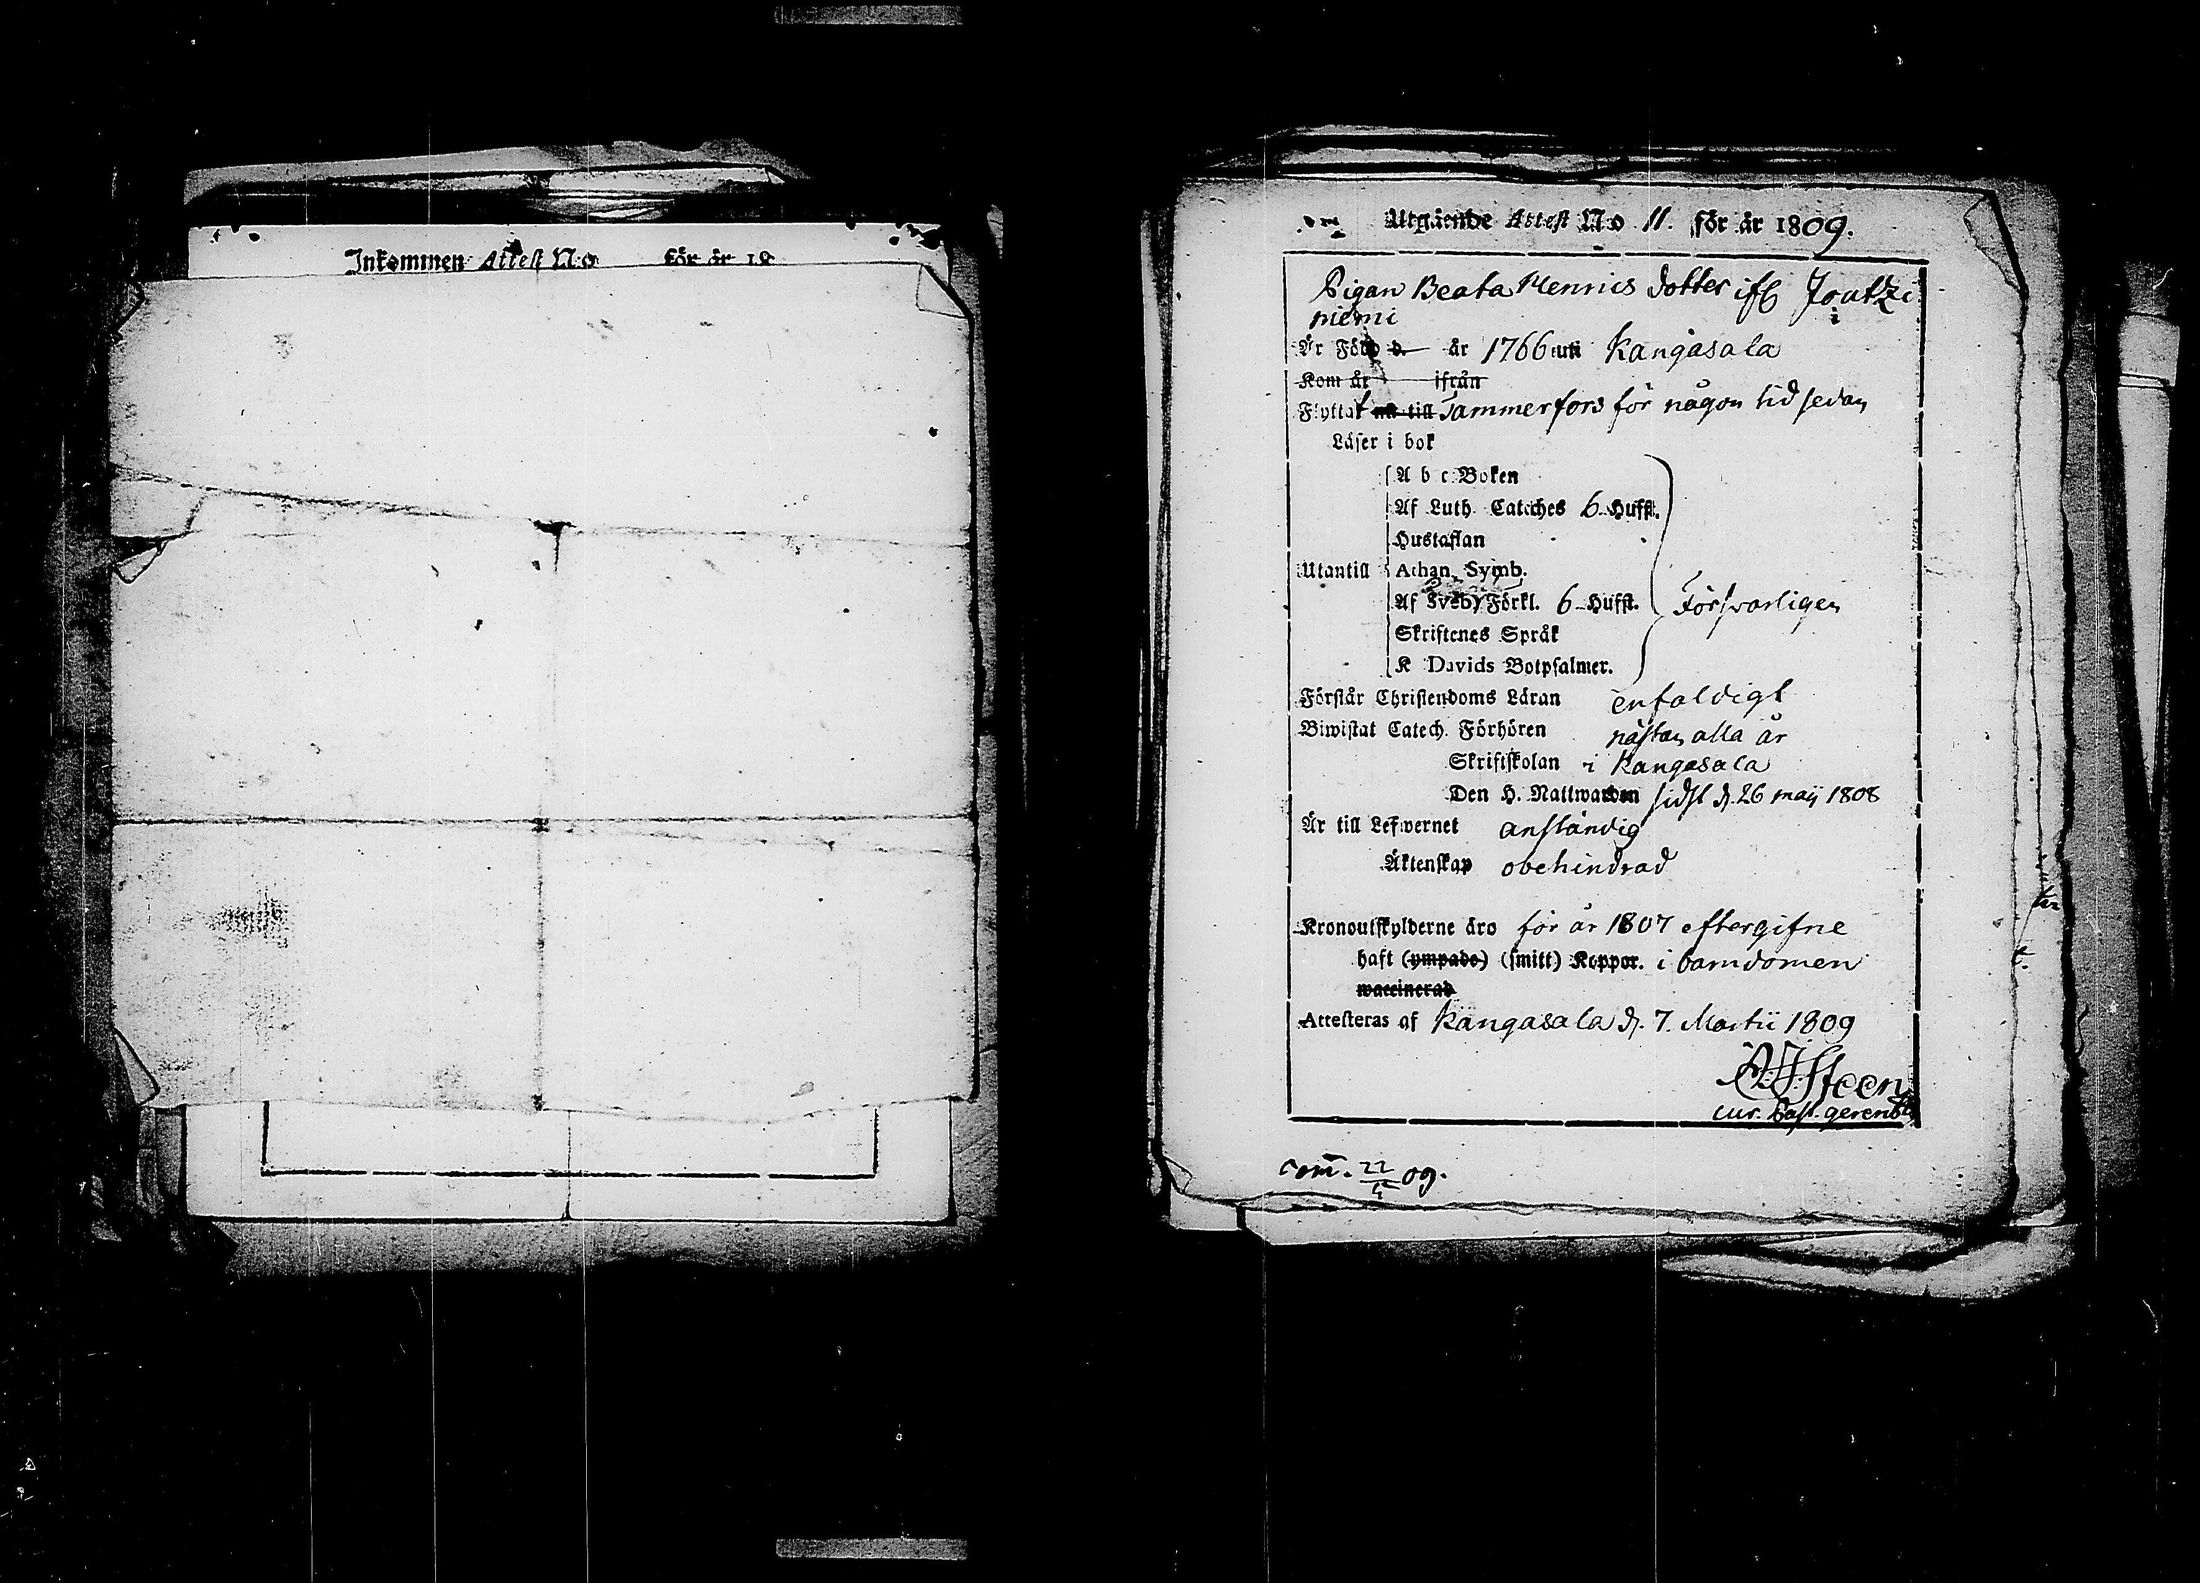 Inkommen Attest N:o för år 18
Utgående Attest N:o 11. för år 1809.
Pigan Beata Henrics dotter ifr Joutzi
niemi
Är Född d. år 1766 uti Kangasala
Kom år ifrån
Flyttat nu till Tammerfors för någon tid sedan
Läser i bok
A b c Boken
Af Luth. Cateches 6 Hufst.
Hustaflan
Utantill Athan. Symb.
Af Sveb. Förkl. 6 Hufst. Försvarligen
Skriftenes Språk
K Davids Botpsalmer.
Förstår Christendoms Läran enfaldigt
Biwistat Catech. Förhören nästan alla år
Skriftskolan i Kangasala
Den H. Nattwarden sidst d. 26 maij 1808
Är till Lefwernet anständig
Äktenskap obehindrad
Kronoutskylderne äro för år 1807 eftergifne
haft (ympade) (smitt) Koppor. i barndomen
waccinerad
Attesteras af Kangasala d. 7. Martii 1809
Steen
cur. Past. gerens
com. 22/4 09.